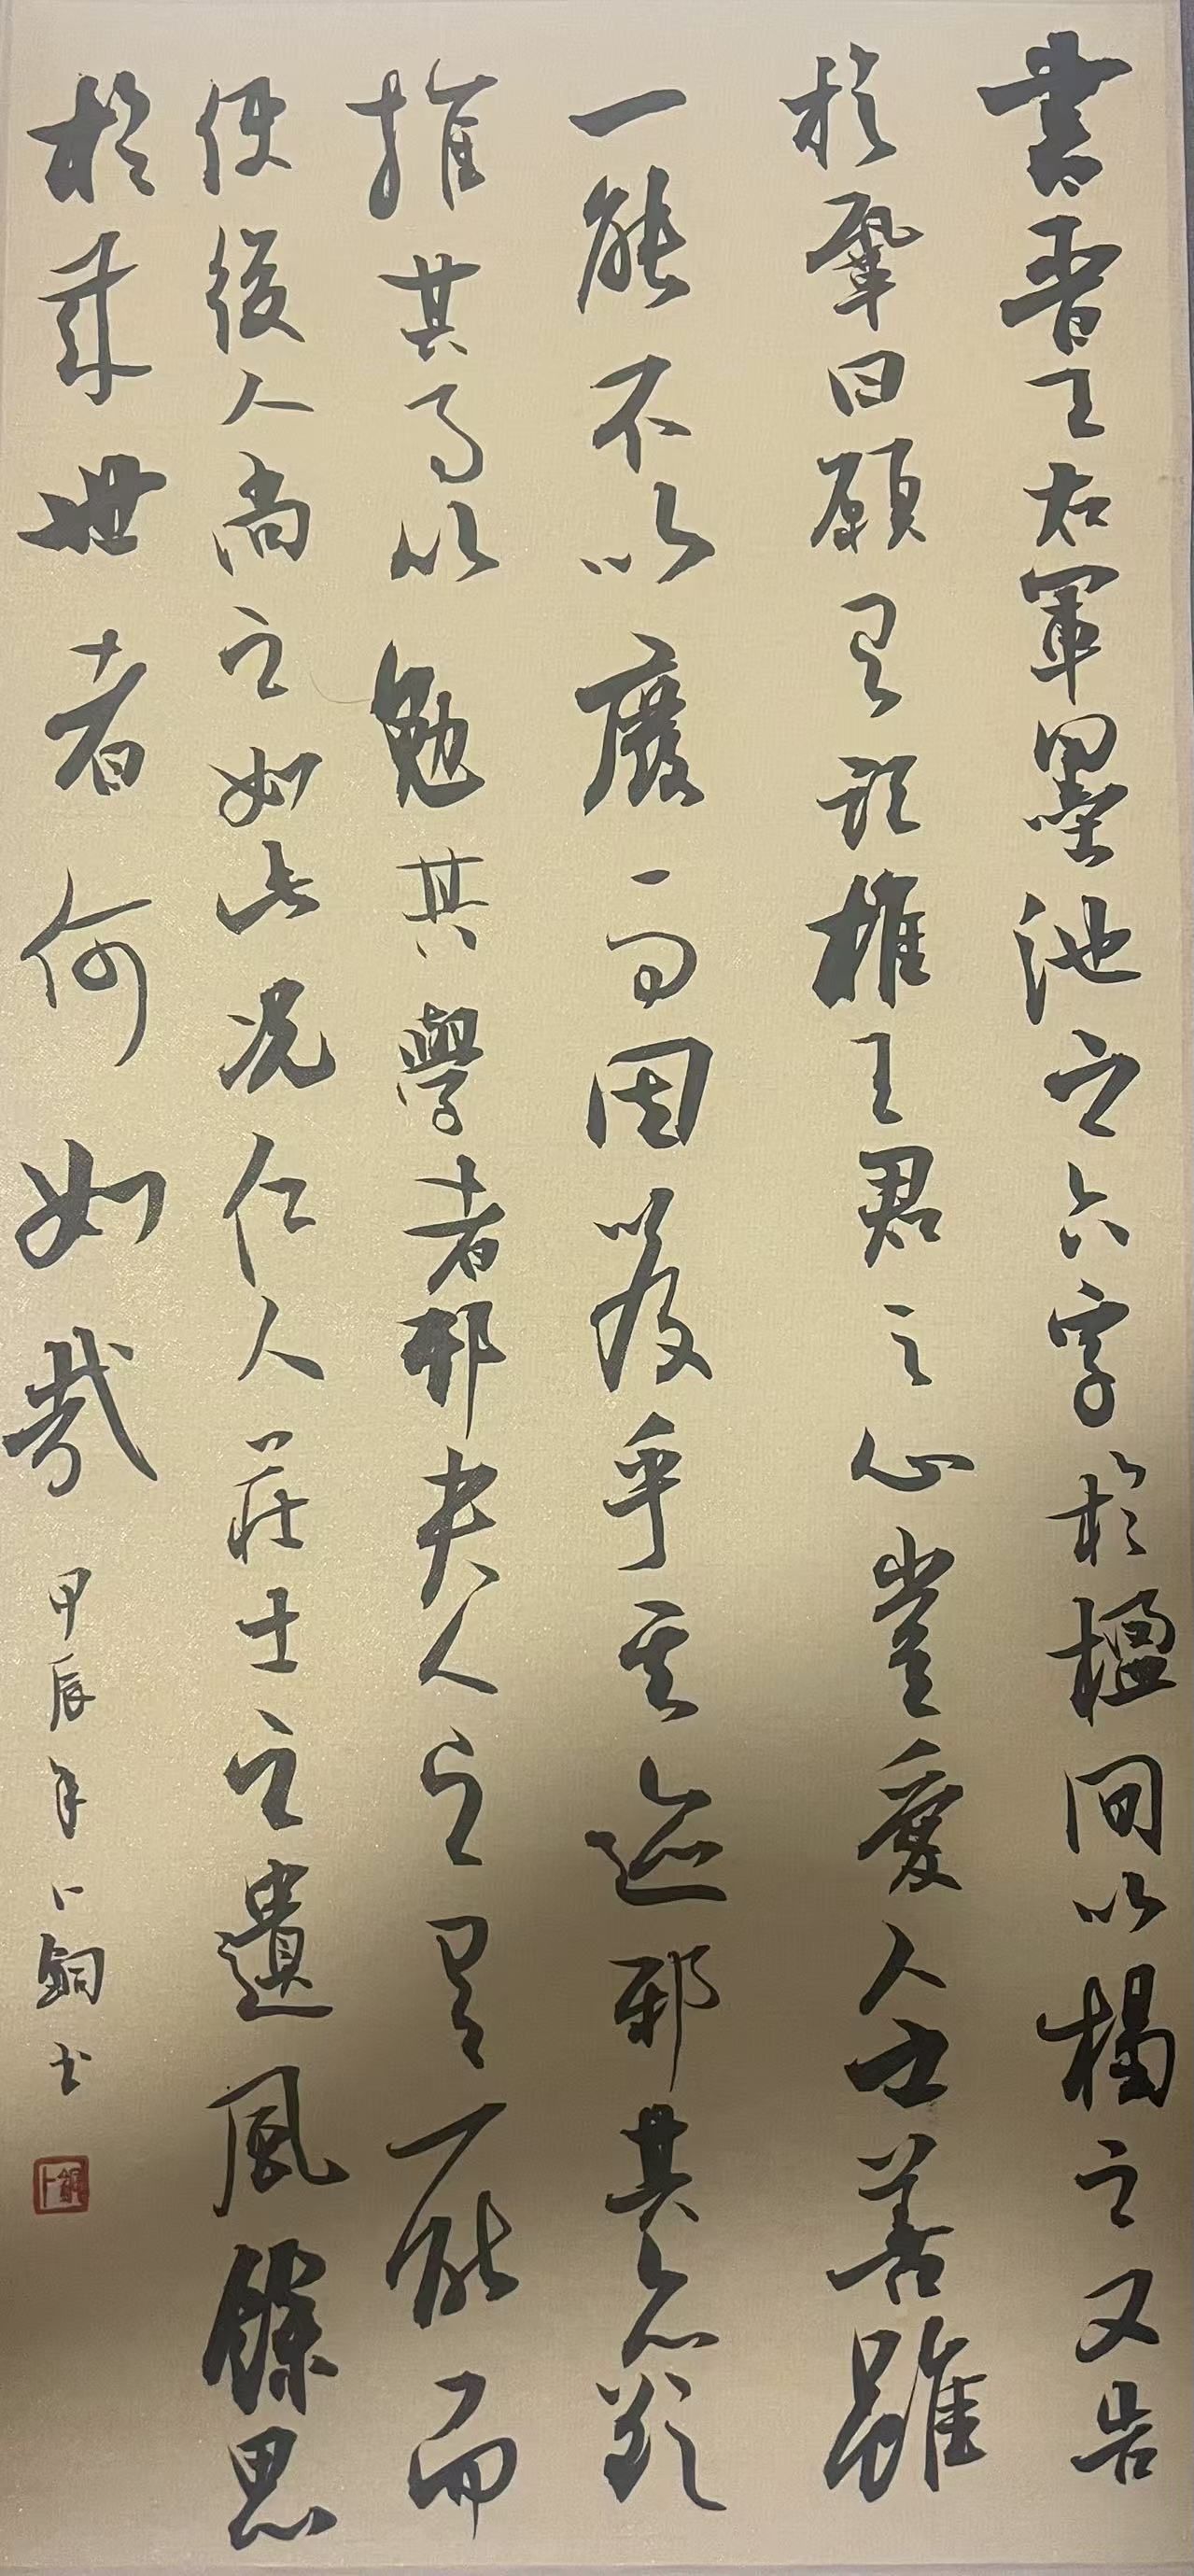 書晋王右軍墨池之六字於楹间以揭之又告
於鞏曰願有記推王君之心豈愛人之善雖
一能不以廢而因以及乎其迹邪其亦欲
推其事以勉其學者邪夫人之有一能而
使後人尚之如此况仁人莊士之遺風餘思
於来世者何如哉
甲辰年卜銅书
卜銅